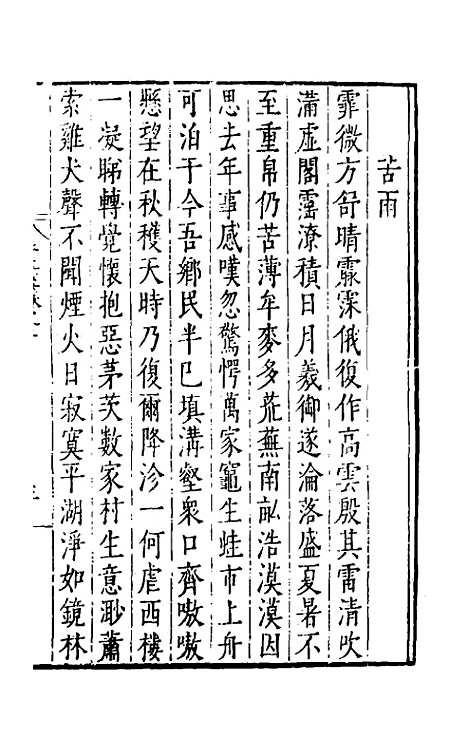 苦雨
霏微方舒晴霢霂俄復作高雲殷其雷清吹
滿虛閣霪潦積日月羲御遂淪落盛夏暑不
至重帛仍苦薄牟麥多荒蕪南畝浩漠漠因
思去年事感嘆忽驚愕萬家竈生蛙市上舟
可泊于今吾鄉民半已填溝壑衆口齊嗷嗷
懸望在秋穫天時乃復爾降沴一何虐西樓
一凝睇轉覺懷抱惡茅茨數家村生意渺蕭
索雞犬聲不聞煙火日寂寞平湖淨如鏡林